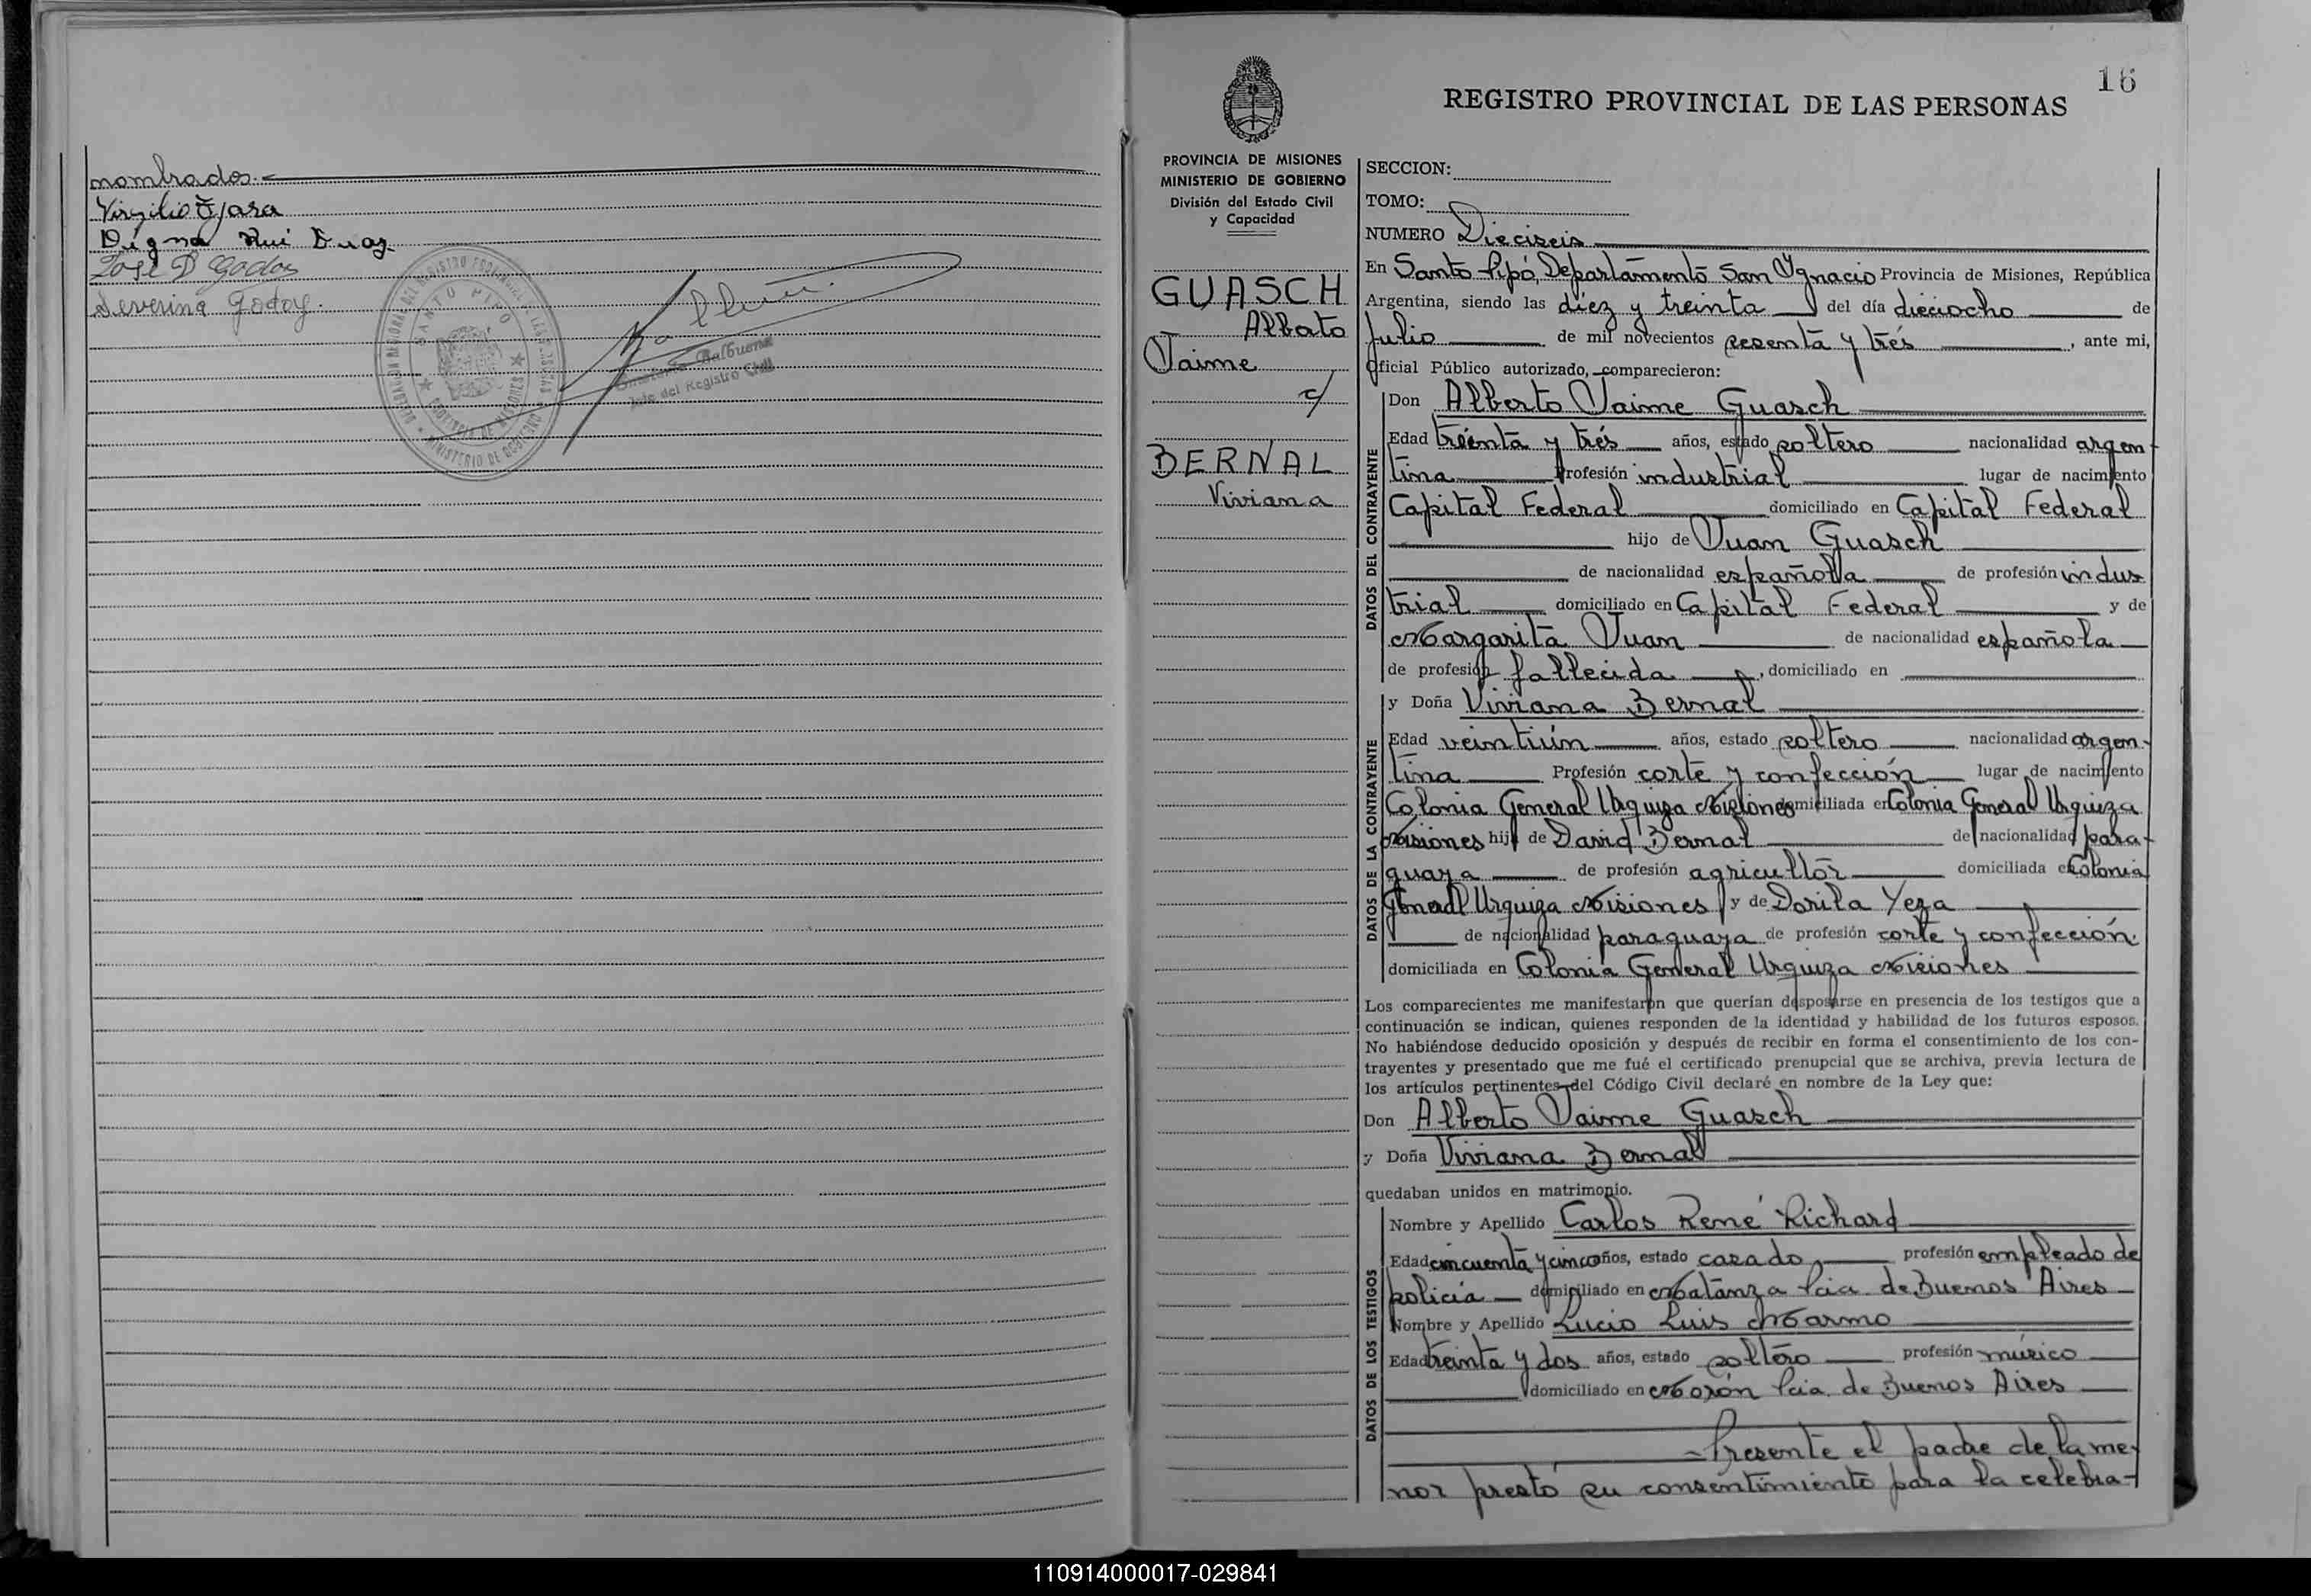 nombrados.
Virgilio Jara
Digna Rui Diaz
José D Godoy
Severina Godoy.
SANTO PIPO
PROVINCIA DE MISIONES
MINISTERIO DE GOBIERNO
Balbuena
Jefe del Registro Civil
16
REGISTRO PROVINCIAL DE LAS PERSONAS
PROVINCIA DE MISIONES
MINISTERIO DE GOBIERNO
División del Estado Civil
y Capacidad
GUASCH
Alberto
Jaime
c/
BERNAL
Viviana
SECCION:
TOMO:
NUMERO Dieciseis
En Santo Pipó, Departamento San Ygnacio Provincia de Misiones, República
Argentina, siendo las diez y treinta del día dieciocho de
Julio de mil novecientos sesenta y trés, ante mi,
Oficial Público autorizado, comparecieron:
DATOS DEL CONTRAYENTE
Don Alberto Jaime Guasch
Edad treinta y trés años, estado soltero nacionalidad argen-
tina Profesión industrial lugar de nacimiento
Capital Federal domiciliado en Capital Federal
hijo de Juan Guasch
de nacionalidad española de profesión indus
trial domiciliado en Capital Federal y de
Margarita Juan de nacionalidad española
de profesión fallecida, domiciliado en
DATOS DE LA CONTRAYENTE
y Doña Viviana Bernal
Edad veintiún años, estado soltero nacionalidad argen-
tina Profesión corte y confección lugar de nacimiento
Colonia General Urquiza Misiones domiciliada en Colonia General Urquiza
Misiones hija de David Bernal de nacionalidad para-
guaya de profesión agricultor domiciliada en Colonia
General Urquiza Misiones y de Dorila Yeza
de nacionalidad paraguaya de profesión corte y confección.
domiciliada en Colonia General Urquiza Misiones
Los comparecientes me manifestaron que querían desposarse en presencia de los testigos que a
continuación se indican, quienes responden de la identidad y habilidad de los futuros esposos.
No habiéndose deducido oposición y después de recibir en forma el consentimiento de los con-
trayentes y presentado que me fué el certificado prenupcial que se archiva, previa lectura de
los artículos pertinentes del Código Civil declaré en nombre de la Ley que:
Don Alberto Jaime Guasch
y Doña Viviana Bernal
quedaban unidos en matrimonio.
DATOS DE LOS TESTIGOS
Nombre y Apellido Carlos René Richard
Edad cincuenta y cinco años, estado casado profesión empleado de
policía domiciliado en Matanza Pcia. de Buenos Aires
Nombre y Apellido Lucio Luis Marmo
Edad treinta y dos años, estado soltero profesión músico
domiciliado en Morón Pcia. de Buenos Aires
Presente el padre de la me-
nor prestó su consentimiento para la celebra-
110914000017-029841